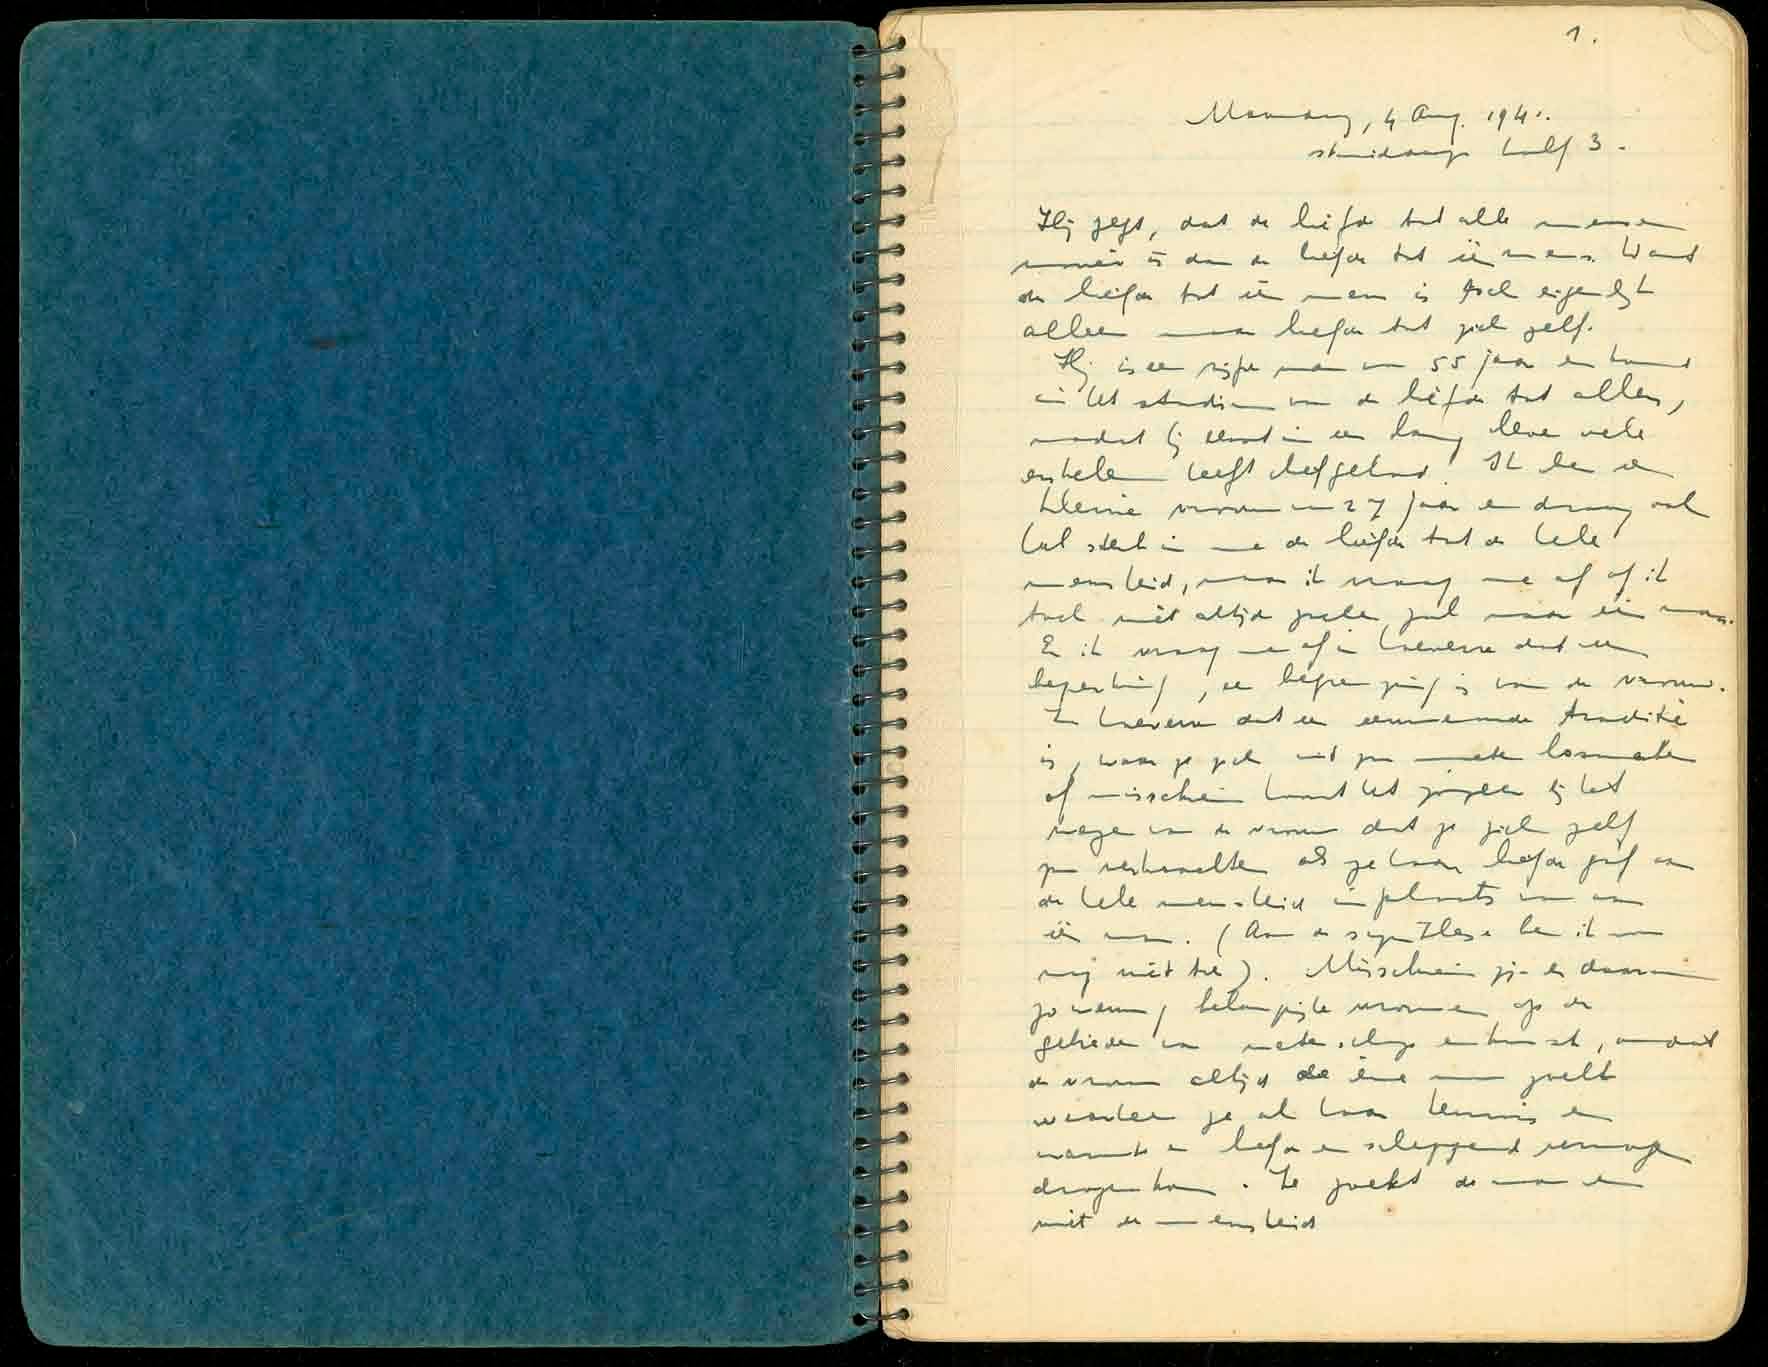 1.
Maandag, 4 Aug. 1941.
's middags half 3.
Hij zegt, dat de liefde tot alle mensen
mooier is dan de liefde tot één mens. Want
de liefde tot één mens is toch eigenlijk
alleen maar liefde tot zich zelf.
Hij is een rijpe man van 55 jaar en komt
in het stadium van de liefde tot allen,
nadat hij eerst in een lang leven vele
enkelen heeft liefgehad. Ik ben een
kleine vrouw van 27 jaar en draag ook
heel sterk in me de liefde tot de hele
mensheid, maar ik vraag me af of ik
toch niet altijd zoeken zal naar één man.
En ik vraag me af in hoeverre dat een
beperking, een begrenzing is van de vrouw.
In hoeverre dat een eeuwenoude traditie
is, waar ze zich uit zou moeten losmaken
of misschien hoort het zozeer bij het
wezen van de vrouw dat ze zich zelf
zou verkrachten als ze haar liefde gaf aan
de hele mensheid in plaats van aan
één man. (Aan de synthese ben ik nog
nog niet toe). Misschien zijn er daarom
zo weinig belangrijke vrouwen op de
gebieden van wetenschap en kunst, omdat
de vrouw altijd de éne man zoekt
waarheen ze al haar kennis en
warmte en liefde en scheppend vermogen
dragen kan. Ze zoekt de man en
niet de mensheid